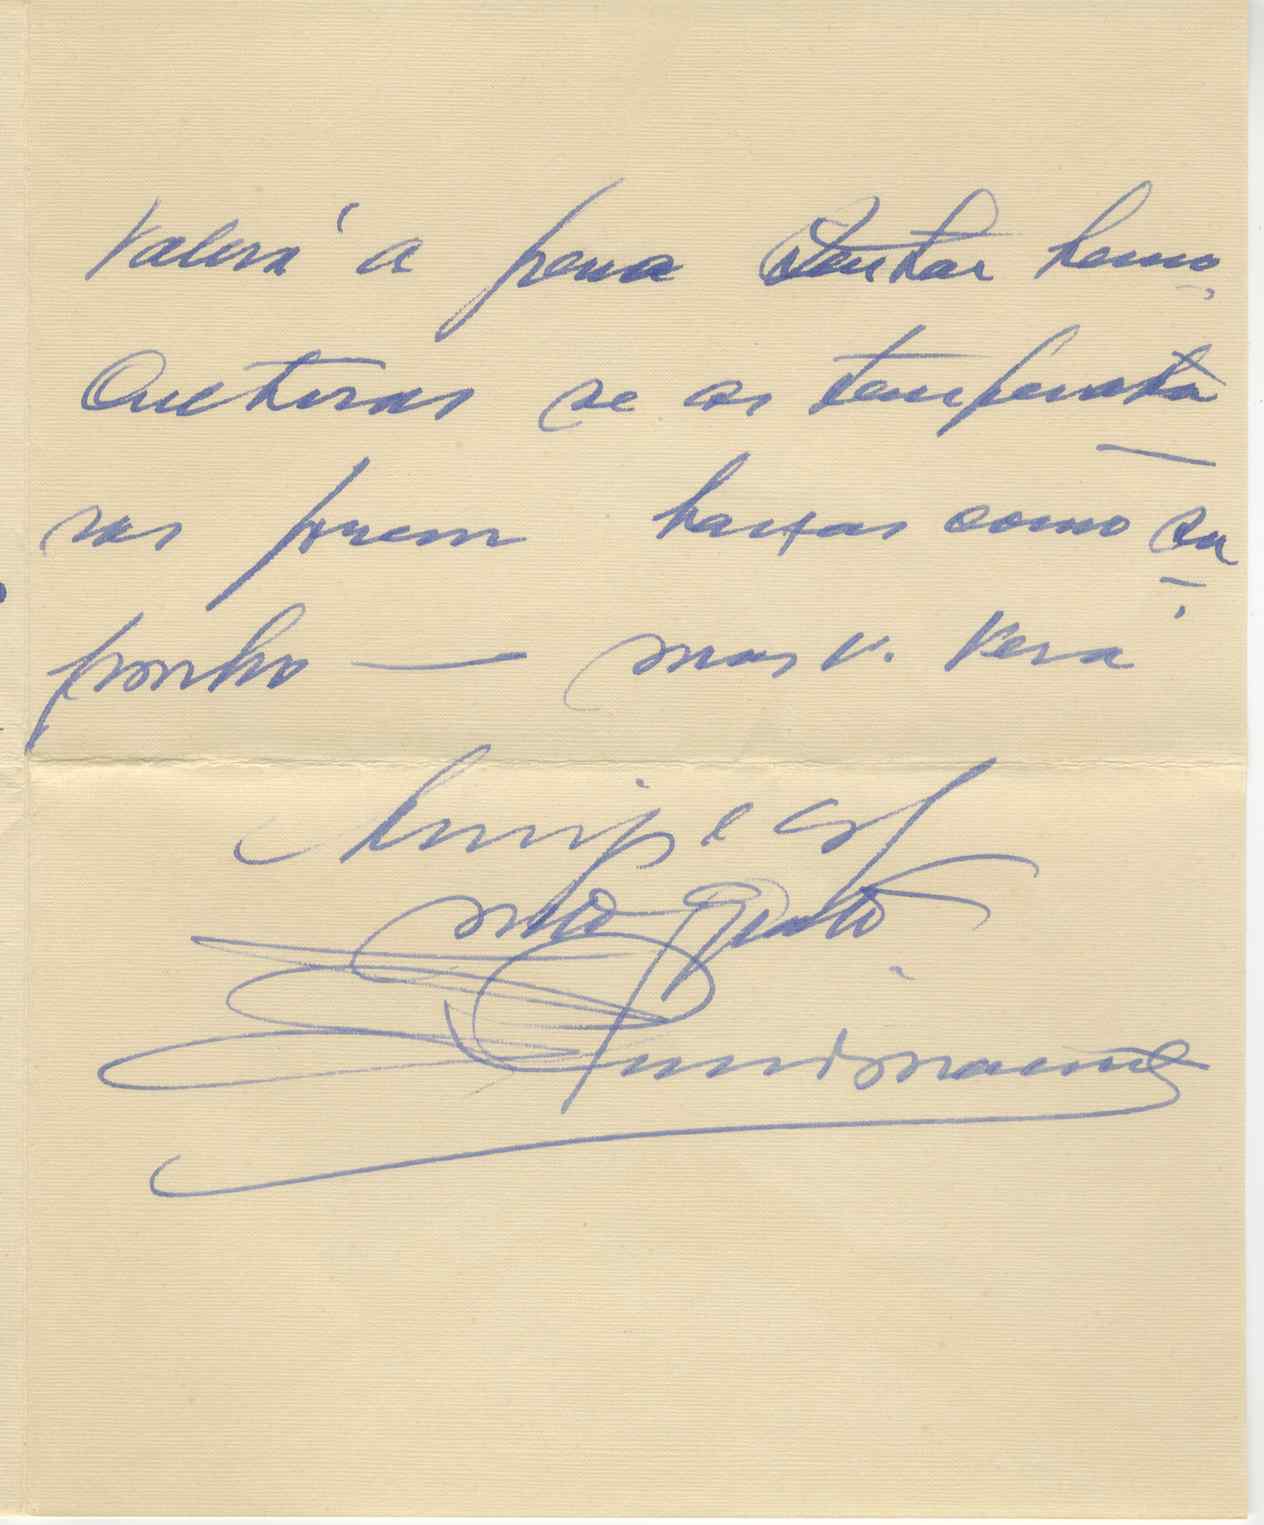 Valerá a pena tentar hemo-
culturas se as temperatu-
ras forem baixas como su-
ponho — mas V. verá
Amigo e col
mto grato